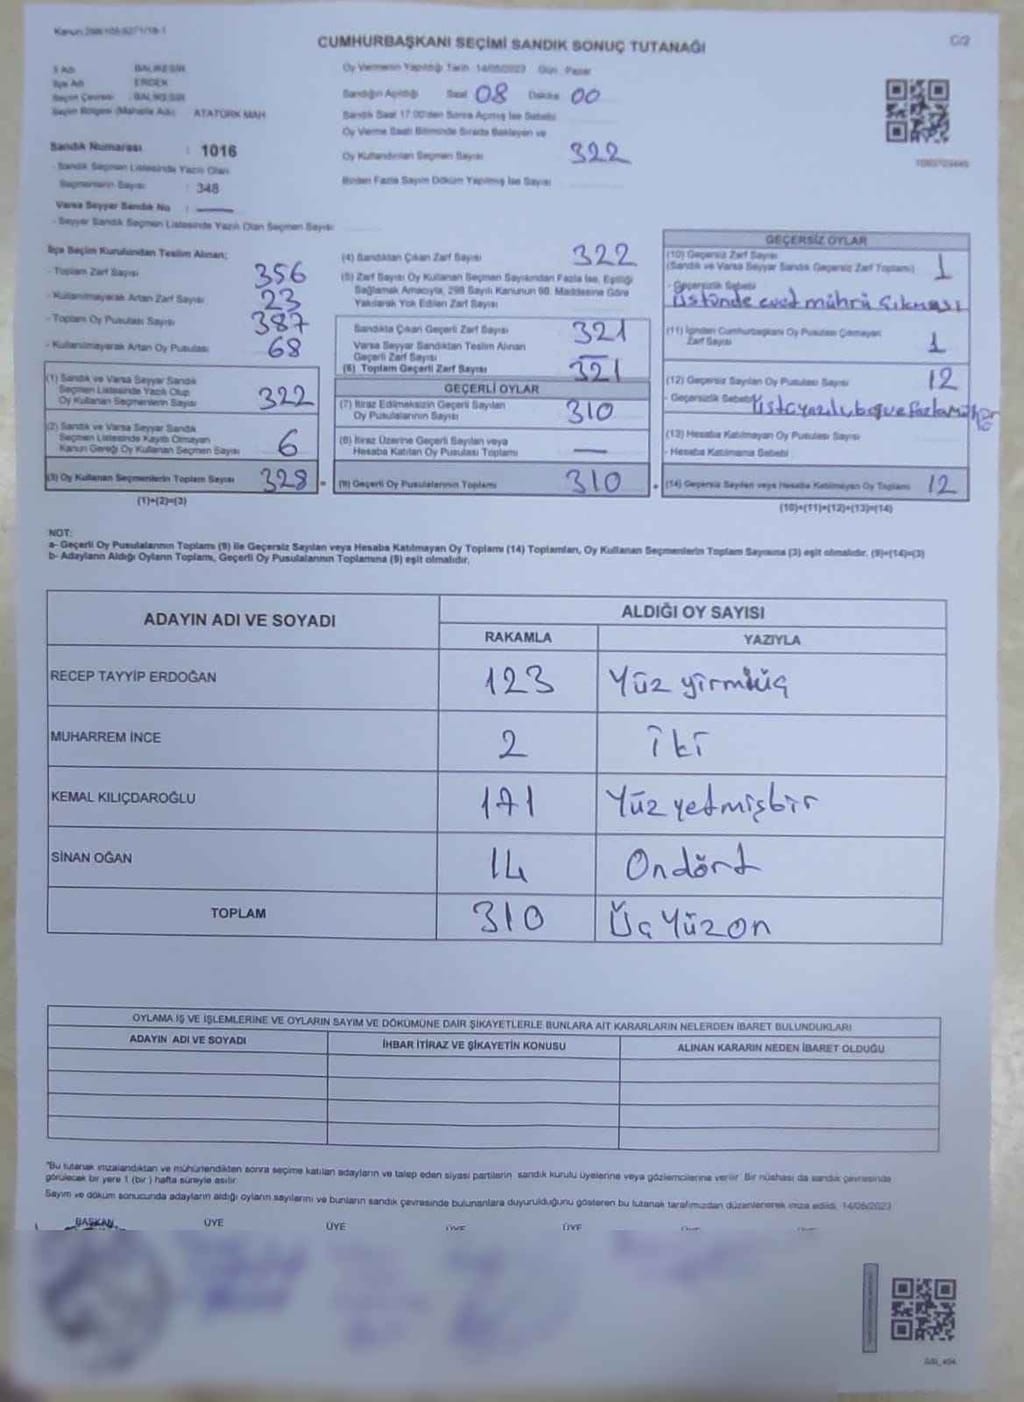 Kanun 298/105-6271/19-1
CUMHURBAŞKANI SEÇİMİ SANDIK SONUÇ TUTANAĞI
C/2
İl Adı BALIKESİR
İlçe Adı ERDEK
Seçim Çevresi BALIKESİR
Seçim Bölgesi (Mahalle Adı) ATATÜRK MAH
Sandık Numarası : 1016
- Sandık Seçmen Listesinde Yazılı Olan
Seçmenlerin Sayısı : 348
Varsa Seyyar Sandık No :
- Seyyar Sandık Seçmen Listesinde Yazılı Olan Seçmen Sayısı
Oy Vermenin Yapıldığı Tarih 14/05/2023 Gün Pazar
Sandığın Açıldığı Saat 08 Dakika 00
Sandık Saat 17.00'den Sonra Açılmış İse Sebebi
Oy Verme Saati Bitiminde Sırada Bekleyen ve
Oy Kullandırılan Seçmen Sayısı 322
Birden Fazla Sayım Döküm Yapılmış İse Sayısı
İlçe Seçim Kurulundan Teslim Alınan;
- Toplam Zarf Sayısı 356
- Kullanılmayarak Artan Zarf Sayısı 23
- Toplam Oy Pusulası Sayısı 387
- Kullanılmayarak Artan Oy Pusulası 68
(1) Sandık ve Varsa Seyyar Sandık
Seçmen Listesinde Yazılı Olup
Oy Kullanan Seçmenlerin Sayısı 322
(2) Sandık ve Varsa Seyyar Sandık
Seçmen Listesinde Kayıtlı Olmayan
Kanun Gereği Oy Kullanan Seçmen Sayısı 6
(3) Oy Kullanan Seçmenlerin Toplam Sayısı 328 =
(1)+(2)=(3)
(4) Sandıktan Çıkan Zarf Sayısı 322
(5) Zarf Sayısı Oy Kullanan Seçmen Sayısından Fazla İse, Eşitliği
Sağlamak Amacıyla, 298 Sayılı Kanunun 98. Maddesine Göre
Yakılarak Yok Edilen Zarf Sayısı
Sandıkta Çıkan Geçerli Zarf Sayısı 321
Varsa Seyyar Sandıktan Teslim Alınan
Geçerli Zarf Sayısı
(6) Toplam Geçerli Zarf Sayısı 321
GEÇERLİ OYLAR
(7) İtiraz Edilmeksizin Geçerli Sayılan
Oy Pusulalarının Sayısı 310
(8) İtiraz Üzerine Geçerli Sayılan veya
Hesaba Katılan Oy Pusulası Toplamı —
(9) Geçerli Oy Pusulalarının Toplamı 310 +
GEÇERSİZ OYLAR
(10) Geçersiz Zarf Sayısı
(Sandık ve Varsa Seyyar Sandık Geçersiz Zarf Toplamı) 1
- Geçersizlik Sebebi
Üstünde evet mührü çıkması
(11) İçinden Cumhurbaşkanı Oy Pusulası Çıkmayan
Zarf Sayısı 1
(12) Geçersiz Sayılan Oy Pusulası Sayısı 12
- Geçersizlik Sebebi
(13) Hesaba Katılmayan Oy Pusulası Sayısı
- Hesaba Katılmama Sebebi
(14) Geçersiz Sayılan veya Hesaba Katılmayan Oy Toplamı 12
(10)+(11)+(12)+(13)=(14)
NOT:
a- Geçerli Oy Pusulalarının Toplamı (9) ile Geçersiz Sayılan veya Hesaba Katılmayan Oy Toplamı (14) Toplamları, Oy Kullanan Seçmenlerin Toplam Sayısına (3) eşit olmalıdır. (9)+(14)=(3)
b- Adayların Aldığı Oyların Toplamı, Geçerli Oy Pusulalarının Toplamına (9) eşit olmalıdır.
ADAYIN ADI VE SOYADI
ALDIĞI OY SAYISI
RAKAMLA YAZIYLA
RECEP TAYYİP ERDOĞAN 123 Yüz yirmiüç
MUHARREM İNCE 2 İki
KEMAL KILIÇDAROĞLU 171 Yüz yetmişbir
SİNAN OĞAN 14 Ondört
TOPLAM 310 Üç Yüzon
OYLAMA İŞ VE İŞLEMLERİNE VE OYLARIN SAYIM VE DÖKÜMÜNE DAİR ŞİKAYETLERLE BUNLARA AİT KARARLARIN NELERDEN İBARET BULUNDUKLARI
ADAYIN ADI VE SOYADI İHBAR İTİRAZ VE ŞİKAYETİN KONUSU ALINAN KARARIN NEDEN İBARET OLDUĞU
*Bu tutanak imzalandıktan ve mühürlendikten sonra seçime katılan adayların ve talep eden siyasi partilerin sandık kurulu üyelerine veya gözlemcilerine verilir. Bir nüshası da sandık çevresinde
görülecek bir yere 1 (bir) hafta süreyle asılır.
Sayım ve döküm sonucunda adayların aldığı oyların sayılarını ve bunların sandık çevresinde bulunanlara duyurulduğunu gösteren bu tutanak tarafımızdan düzenlenerek imza edildi. 14/05/2023
BAŞKAN ÜYE ÜYE ÜYE ÜYE